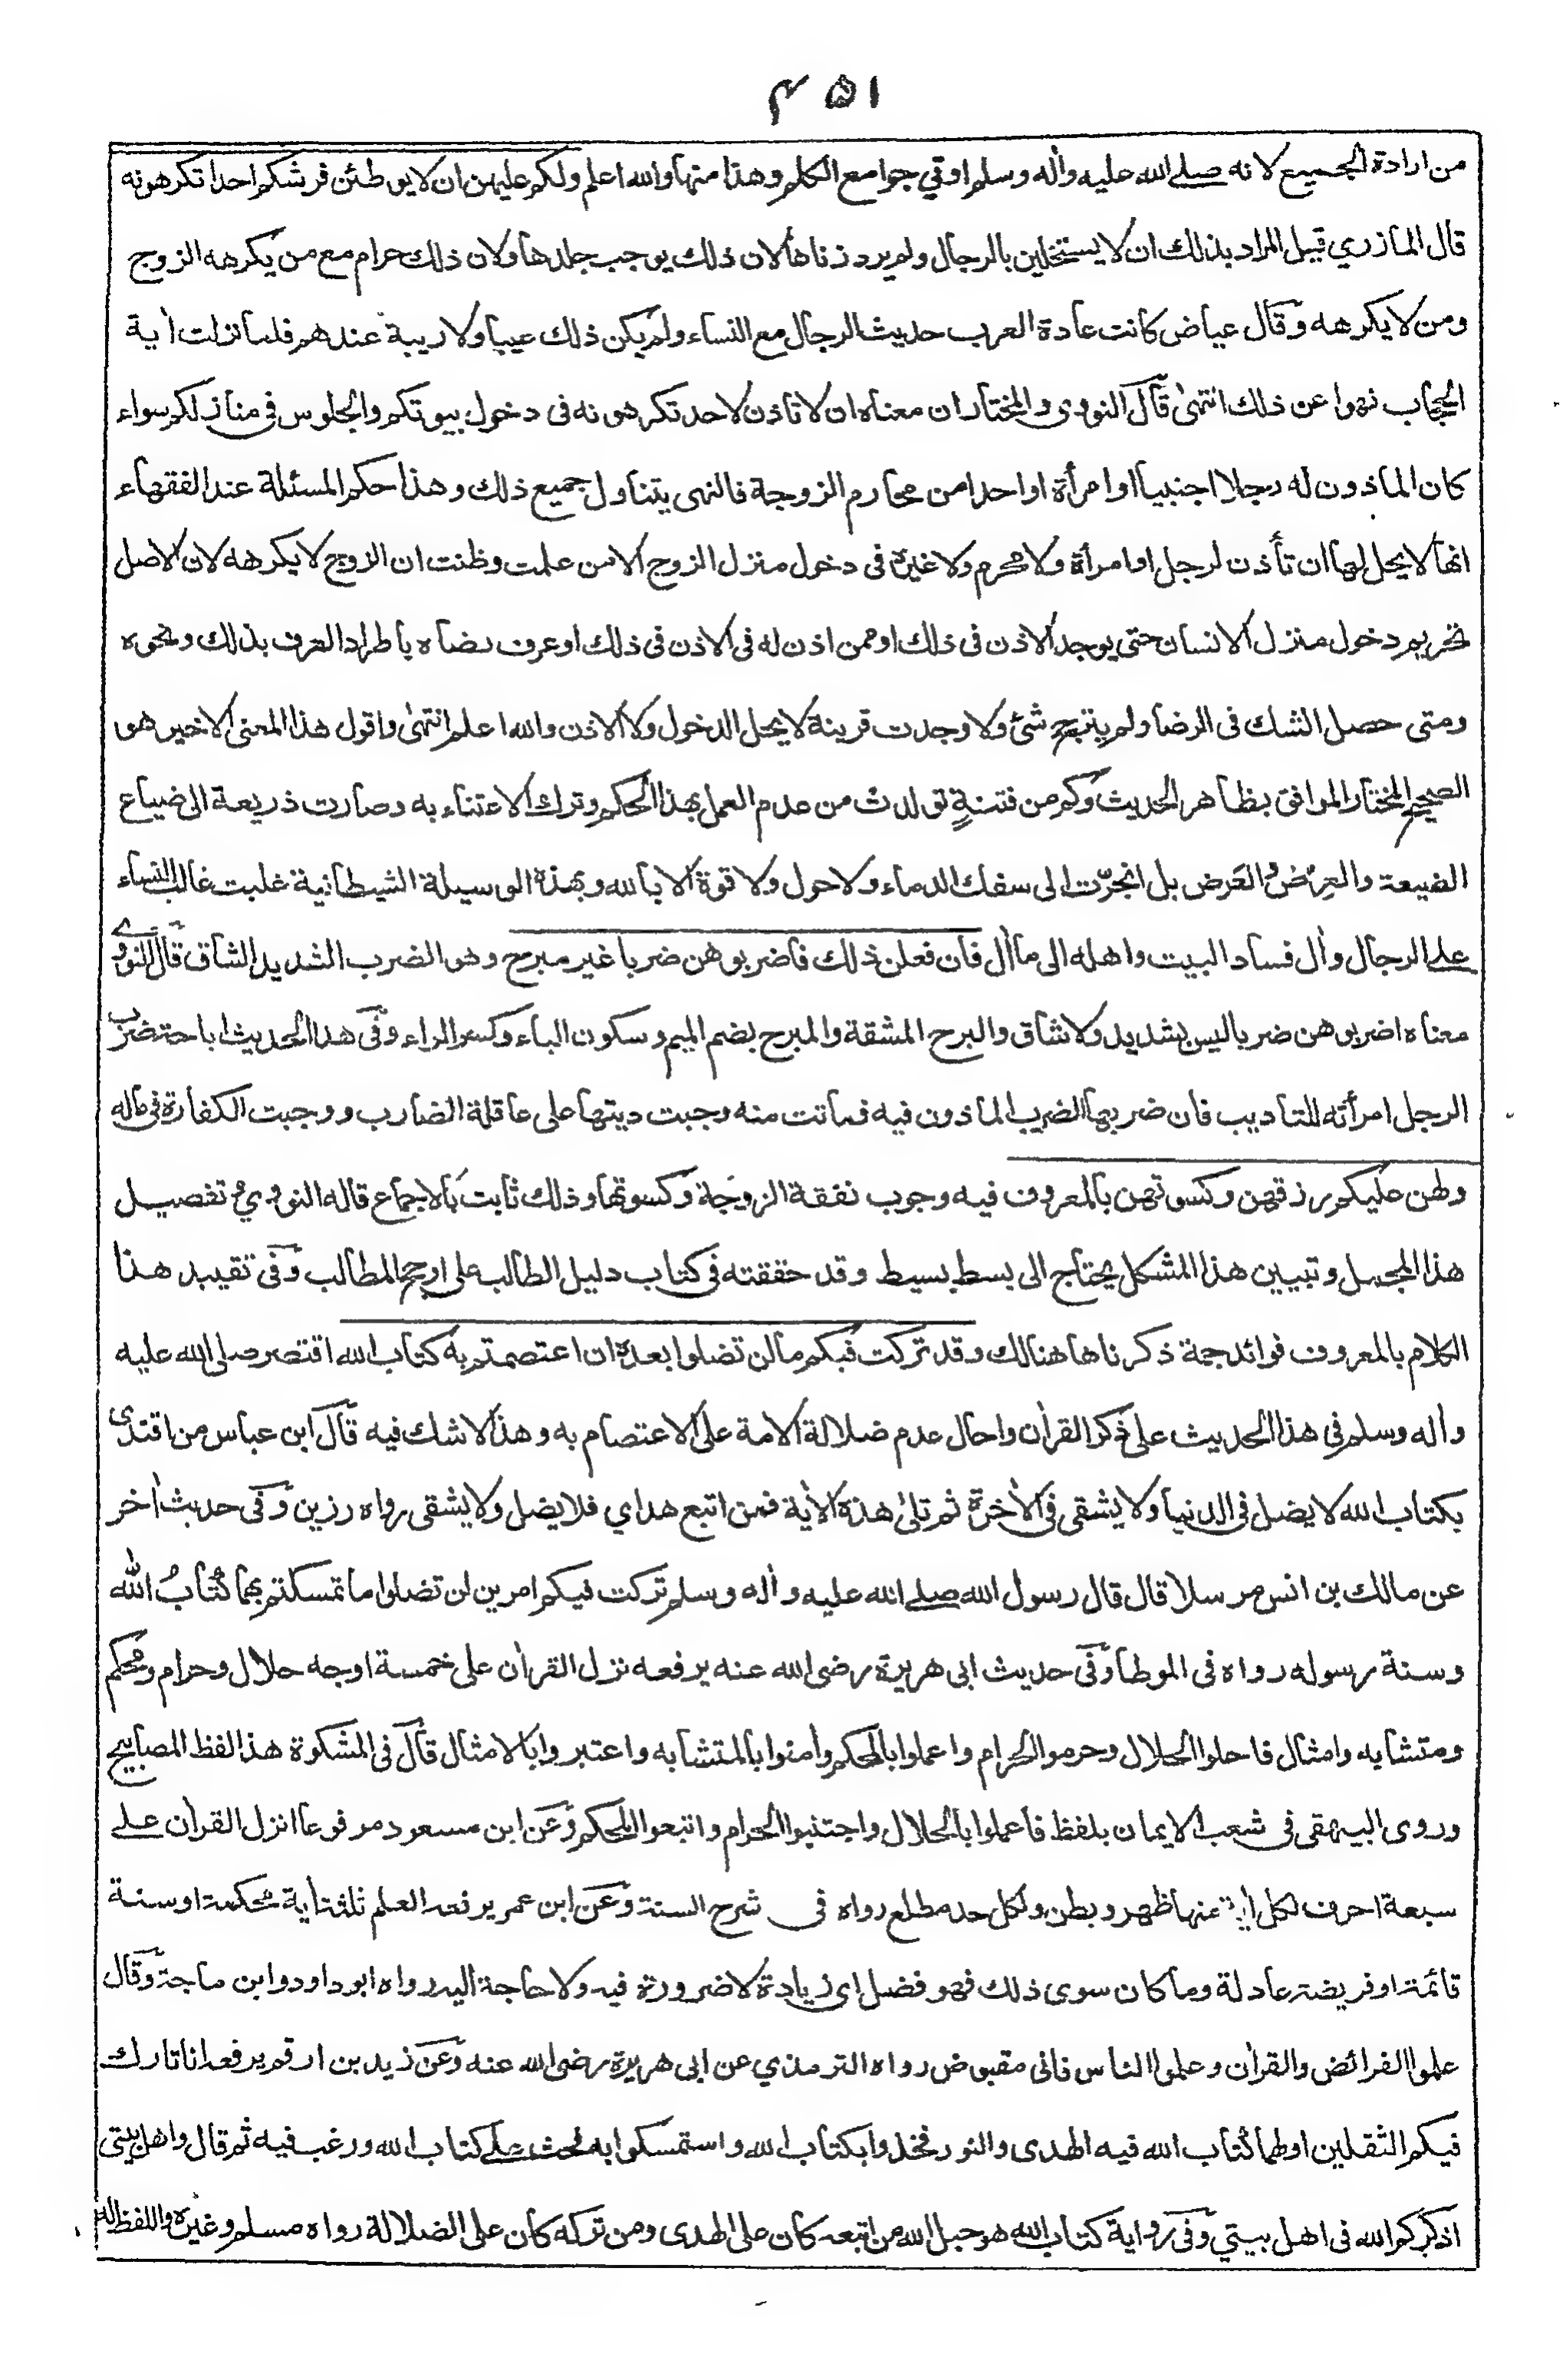 ٤٥١
من ارادة الجميع لانه صلے الله عليه واٰله وسلم اوتي جوامع الكلم وهذا منها والله اعلم ولكم عليهن ان لا يوطئن فرشكم احدا تكرهونه
قال المازري قيل المراد بذلك ان لا يستخلين بالرجال ولم يرد زناها لان ذلك يوجب جلدها ولان ذلك حرام مع من يكرهه الزوج
ومن لا يكرهه وقال عياض كانت عادة العرب حديث الرجال مع النساء ولم يكن ذلك عيبا ولا ريبة عندهم فلما نزلت اٰية
الحجاب نهوا عن ذلك انتهىٰ قال النووى والمختار ان معناه ان لا تاذن لاحد تكرهونه فى دخول بيوتكم والجلوس فى منازلكم سواء
كان الماذون له رجلا اجنبيا او امرأة او احدا من محارم الزوجة فالنهى يتناول جميع ذلك وهذا حكم المسئلة عند الفقهاء
انها لا يحل لها ان تأذن لرجل او امرأة ولا محرم ولا غيره فى دخول منزل الزوج الا من علمت وظنت ان الزوج لا يكرهه لان الاصل
تحريم دخول منزل الانسان حتى يوجد الاذن فى ذلك او ممن اذن له فى الاذن فى ذلك او عرف رضاه باطراد العرف بذلك ونحوه
ومتى حصل الشك فى الرضا ولم يترجح شئ ولا وجدت قرينة لا يحل الدخول ولا الاذن والله اعلم انتهىٰ واقول هذا المعنى الاخير هو
الصحيح المختار الموافق بظاهر الحديث وكم من فتنةٍ تولدت من عدم العمل بهذا الحكم وترك الاعتناء به وصارت ذريعة الى ضياع
الضيعة والعِرْض والعَرض بل انجرّت الى سفك الدماء ولا حول ولا قوة الا بالله وبهذه الوسيلة الشيطانية غلبت غالب النساء
علے الرجال واٰل فساد البيت واهله الى ما اٰل فان فعلن ذلك فاضربوهن ضربا غير مبرح وهو الضرب الشديد الشاق قال النووے
معناه اضربوهن ضربا ليس بشديد ولا شاق والبرح المشقة والمبرح بضم الميم وسكون الباء وكسر الراء وفى هذا الحديث اباحة ضرب
الرجل امرأته للتاديب فان ضربها الضرب الماذون فيه فماتت منه وجبت ديتها على عاقلة الضارب ووجبت الكفارة فى ماله
ولهن عليكم رزقهن وكسوتهن بالمعروف فيه وجوب نفقة الزوجة وكسوتها وذلك ثابت بالاجماع قاله النووي وتفصيل
هذا المجمل وتبيين هذا المشكل يحتاج الى بسط بسيط وقد حققته فى كتاب دليل الطالب على ارجح المطالب وفى تقييد هذا
الكلام بالمعروف فوائد جمة ذكرناها هنالك وقد تركت فيكم ما لن تضلوا بعده ان اعتصمتم به كتاب الله اقتصر صلى الله عليه
واٰله وسلم فى هذا الحديث على ذكر القراٰن واحال عدم ضلالة الامة على الاعتصام به وهذا لا شك فيه قال ابن عباس من اقتدى
بكتاب الله لا يضل فى الدنيا ولا يشقى فى الاٰخرة ثم تلىٰ هذه الاٰية فمن اتبع هداي فلا يضل ولا يشقى رواه رزين وفى حديث اٰخر
عن مالك بن انس مرسلا قال قال رسول الله صلے الله عليه واٰله وسلم تركت فيكم امرين لن تضلوا ما تمسكتم بهما كتابُ الله
وسنة رسوله رواه فى الموطأ وفى حديث ابى هريرة رضى الله عنه يرفعه نزل القراٰن على خمسة اوجه حلال وحرام ومحكم
ومتشابه وامثال فاحلوا الحلال وحرموا الحرام واعملوا بالمحكم واٰمنوا بالمتشابه واعتبروا بالامثال قال فى المشكوة هذا لفظ المصابيح
وروى البيهقى فى شعب الايمان بلفظ فاعملوا بالحلال واجتنبوا الحرام واتبعوا المحكم وعن ابن مسعود مرفوعا انزل القراٰن علے
سبعة احرف لكل اٰية منها ظهر وبطن ولكل حد مطلع رواه فى شرح السنة وعن ابن عمر يرفعه العلم ثلثة اٰية محكمة او سنة
قائمة او فريضة عادلة وما كان سوى ذلك فهو فضل اى زيادة لا ضرورة فيه ولا حاجة اليه رواه ابو داود وابن ماجة وقال
علموا الفرائض والقراٰن وعلموا الناس فانى مقبوض رواه الترمذي عن ابى هريرة رضى الله عنه وعن زيد بن ارقم يرفعه انا تارك
فيكم الثقلين اولهما كتاب الله فيه الهدى والنور فخذوا بكتاب الله واستمسكوا به فحث علے كتاب الله ورغب فيه ثم قال واهل بيتى
اذكركم الله فى اهل بيتي وفى رواية كتاب الله هو حبل الله من اتبعه كان على الهدى ومن تركه كان على الضلالة رواه مسلم وغيره واللفظ له